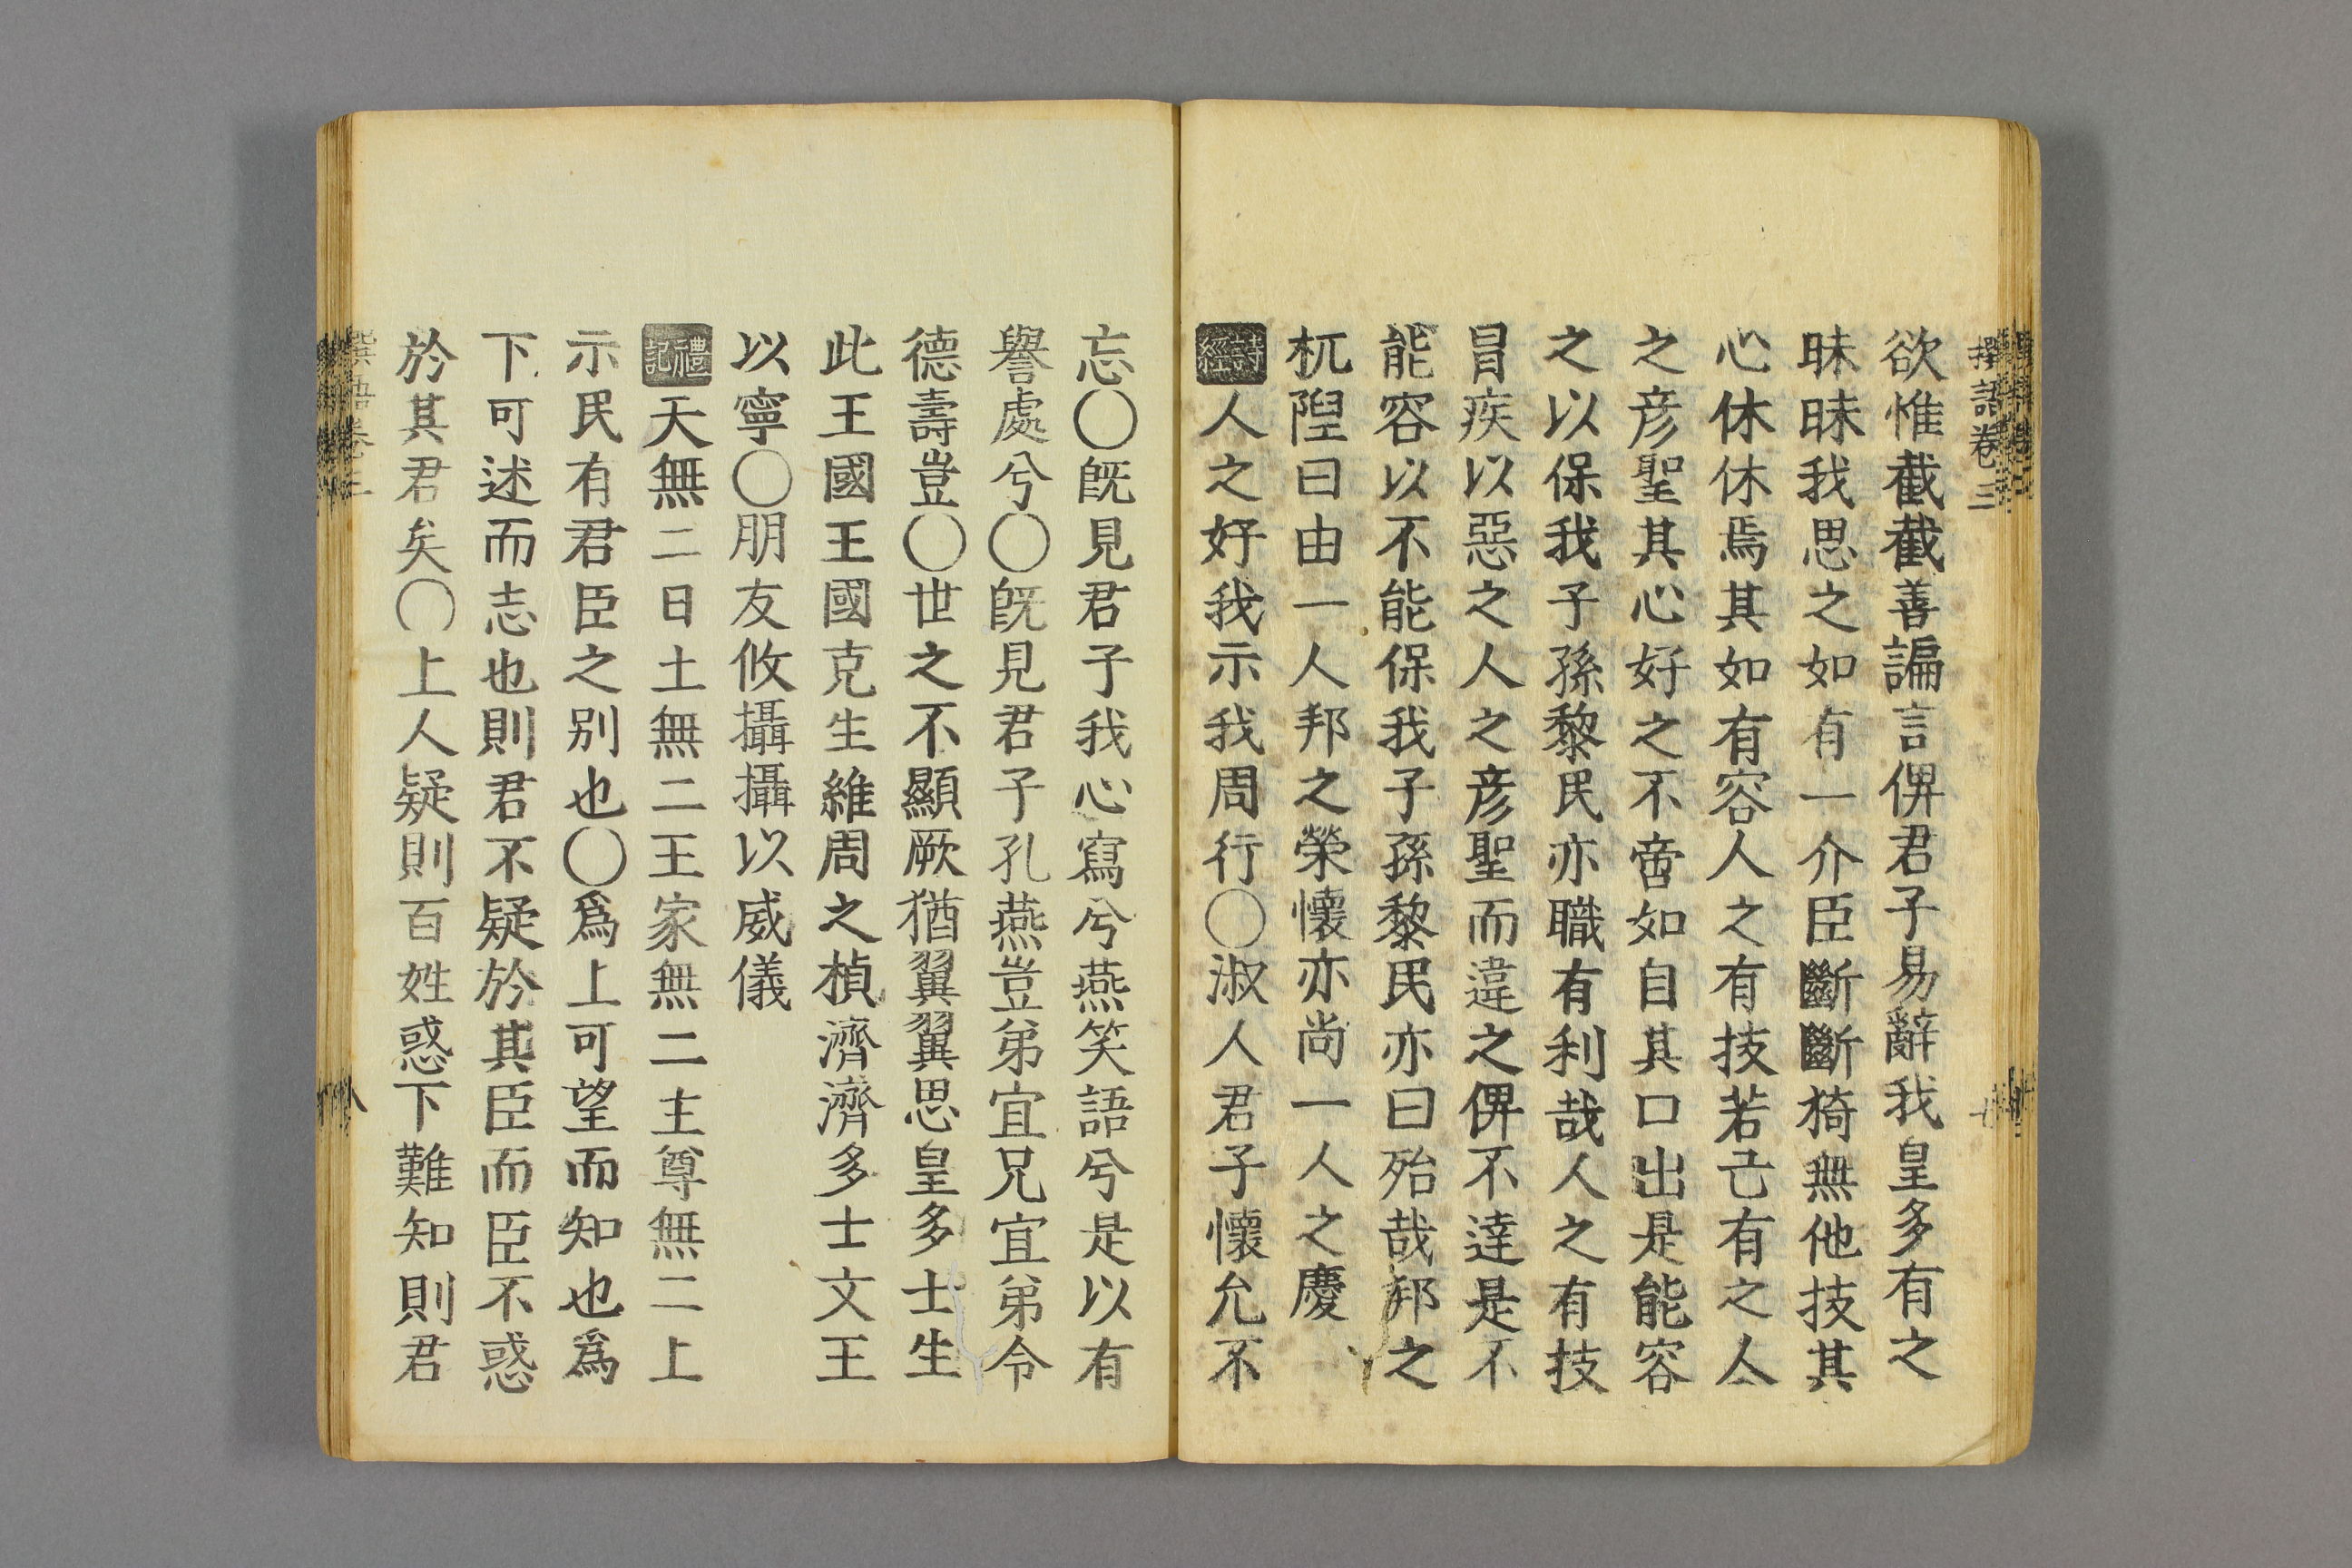 撰語卷三
欲惟截截善諞言俾君子易辭我皇多有之
昧昧我思之如有一介臣斷斷猗無他技其
心休休焉其如有容人之有技若己有之人
之彦聖其心好之不啻如自其口出是能容
之以保我子孫黎民亦職有利哉人之有技
冒疾以惡之人之彦聖而違之俾不達是不
能容以不能保我子孫黎民亦曰殆哉邦之
杌隉曰由一人邦之榮懷亦尚一人之慶
詩經人之好我示我周行〇淑人君子懷允不
忘〇既見君子我心寫兮燕笑語兮是以有
譽處兮〇既見君子孔燕豈弟宜兄宜弟令
德壽豈〇世之不顯厥猶翼翼思皇多士生
此王國王國克生維周之楨濟濟多士文王
以寧〇朋友攸攝攝以威儀
禮記天無二日土無二王家無二主尊無二上
示民有君臣之别也〇爲上可望而知也爲
下可述而志也則君不疑於其臣而臣不惑
於其君矣〇上人疑則百姓惑下難知則君
撰語卷三
八